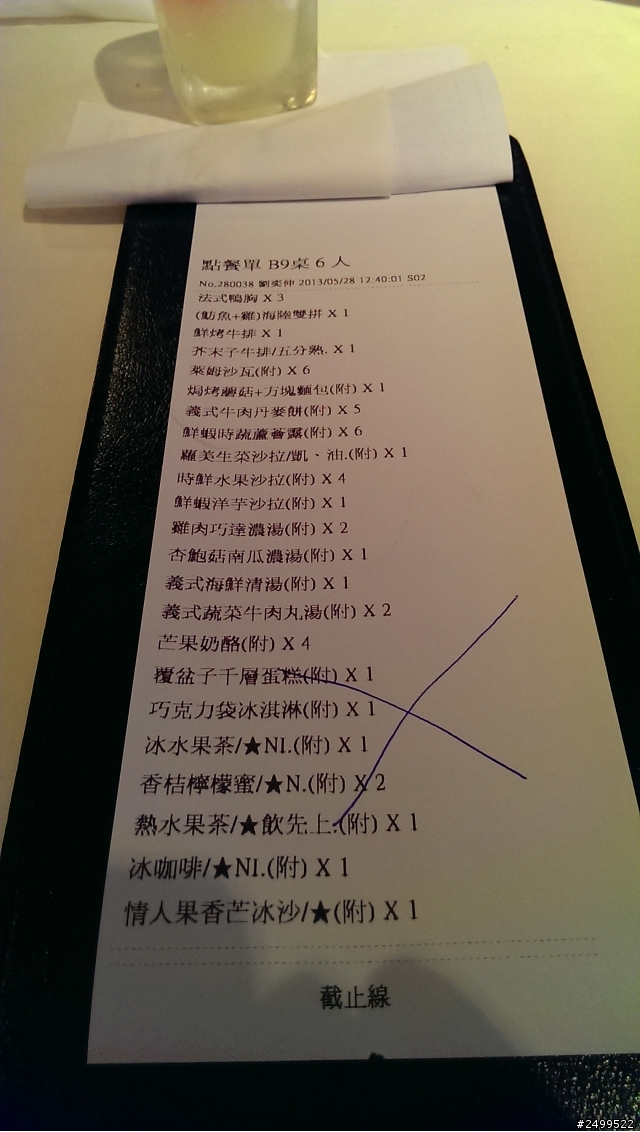 點餐單 B9桌 6 人
No.280038 劉奕伸 2013/05/28 12:40:01 S02
法式鴨胸 X 3
(魴魚+雞)海陸雙拼 X 1
鮮烤牛排 X 1
芥末子牛排/五分熟. X 1
萊姆沙瓦(附) X 6
焗烤蘑菇+方塊麵包(附) X 1
義式牛肉丹麥餅(附) X 5
鮮蝦時蔬蘆薈露(附) X 6
蘿美生菜沙拉/凱、油.(附) X 1
時鮮水果沙拉(附) X 4
鮮蝦洋芋沙拉(附) X 1
雞肉巧達濃湯(附) X 2
杏鮑菇南瓜濃湯(附) X 1
義式海鮮清湯(附) X 1
義式蔬菜牛肉丸湯(附) X 2
芒果奶酪(附) X 4
覆盆子千層蛋糕(附) X 1
巧克力袋冰淇淋(附) X 1
冰水果茶/★NI.(附) X 1
香桔檸檬蜜/★N.(附) X 2
熱水果茶/★飲先上.(附) X 1
冰咖啡/★NI.(附) X 1
情人果香芒冰沙/★(附) X 1
截止線
#2499522